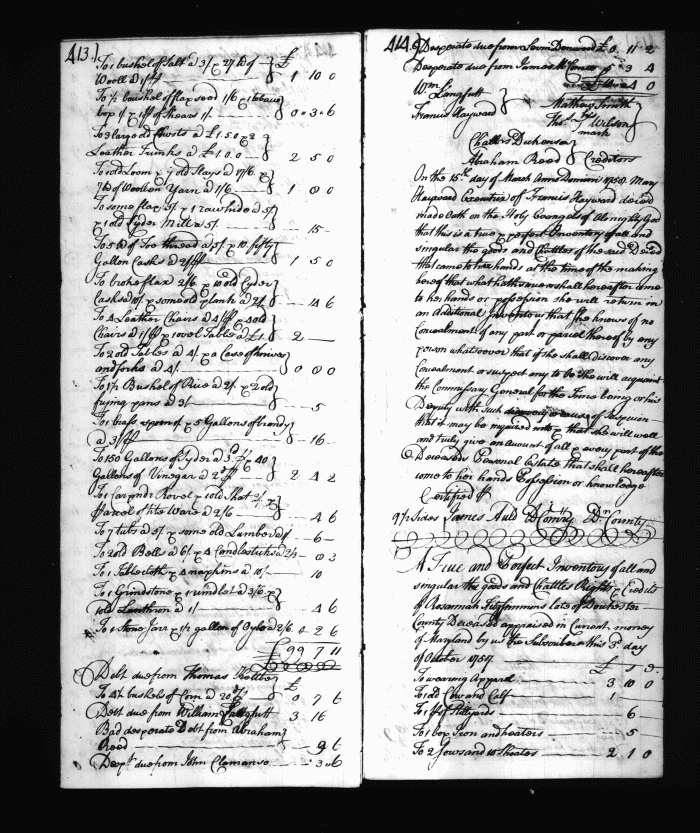 413.)
To 1 bushel of Salt a 3/ & 27 lb of £
Wooll a 1/ 1 10 0
To 1/2 boushel of flaxseed 1/6 & 1 tobacco
box & 1 of Shears 1/ 0 " 3 " 6
To 3 large old Chests a £1.5.0 & 2
Leather Trunks a £1.0.0 2 5 0
To 1 old Loom & 7 old Stays a 17/6 &
7 lb of Woollen Yarn a 1/6 1 8 0
To some flax 5/ & 1 rawhide a 5/
& 1 old Cyder Mill a 5/ 15
To 5 lb of Shoe thread a 5/ & 10 fifty
Gallon Casks a 2/ 1 5 0
To broke flax 2/6 & 10 old Cyder
Casks a 10/ & some old plank a 2/ 14 6
To 4 Leather Chairs a 4/ & 4 old
Chairs a 1/ & 1 oval Table a £1 2
To 2 old Tables a 4/ & a Case of knives
and forks a 4/ 0 8 0
To 1 1/2 Bushel of Rice a 2/ & 2 old
frying pans a 3/ 5
To 1 brass & 5 Gallons of brandy
a 3/ 16
To 150 Gallons of Cyder a 3d & 40
Gallons of Vinegar a 2 4 2
To 1 & 1 old 2/ &
a parcel of tite Ware a 2/6 4 6
To 7 tubs a 5/ & some old Lumber a 6
To 2 old Bells a 6/ & 4 Candlesticks a 2/3 8 3
To 1 Tablecloth & 4 napkins a 10/ 10
To 1 Grindstone & 1 rundlet a 3/6 &
1 old Lanthron a 1/ 4 6
To 1 Stone Jarr & 1/2 gallon of Oyle a 2/6. 0 2 6
£ 99 7 11
Debt due from Thomas £
To 4 1/2 bushels of Corn a 20d 0 7 6
Debt due from William Langfitt 3 16
Bad desperate Debt from Abraham
Reed 9 6
Despt. due from John Clemans 3 " 6
414.)
Desperate due from Denwood £ 0 11 2
Desperate due from James 5 3 4
4 0
Wm. Langfitt
Francis Hayward
Mathew Smith
Thos. his T mark Wilson
Charles Dickenson
Abraham Reed } Creditors
On the 15th day of March Anno Domini 1758. Mary
Hayward Executrix of Francis Hayward deceased
made Oath on the Holy Evangels of Almighty God
that this is a true & perfect Inventory of all and
singular the goods and Chattles of the said Deced
that came to her hands at the time of the making
hereof that what hath since or shall hereafter come
to her hands or possession she will return in
an additional Inventory that she knows of no
Concealment of any part or parcel thereof by any
person whatsoever that if she shall discover any
Concealment or suspect any to be she will acquaint
the Commissary General for the Time being or his
Deputy with such discovery or cause of Suspicion
that it may be inquired into & that she will well
and truly give an account of all & every part of the
Deceaseds Personal Estate that shall hereafter
come to her hands Possession or knowledge
Certified
97/2 sides James Auld D Comry Dr. County.
A True and Perfect Inventory of all and
singular the goods and Chattles Rights & Credits
of Rosannah Fitzsimmons late of Dorchester
County Deceased appraised in Current money
of Maryland by us the Subscribers this 3d day
of October 1757. £ s d
To wearing Apparel 3 10 0
To 1 old Cow and Calf 1
To 1 of Stilyards 6
To 1 box Iron and heaters 5
To 2 Sows and 10 Shoates 2 1 0